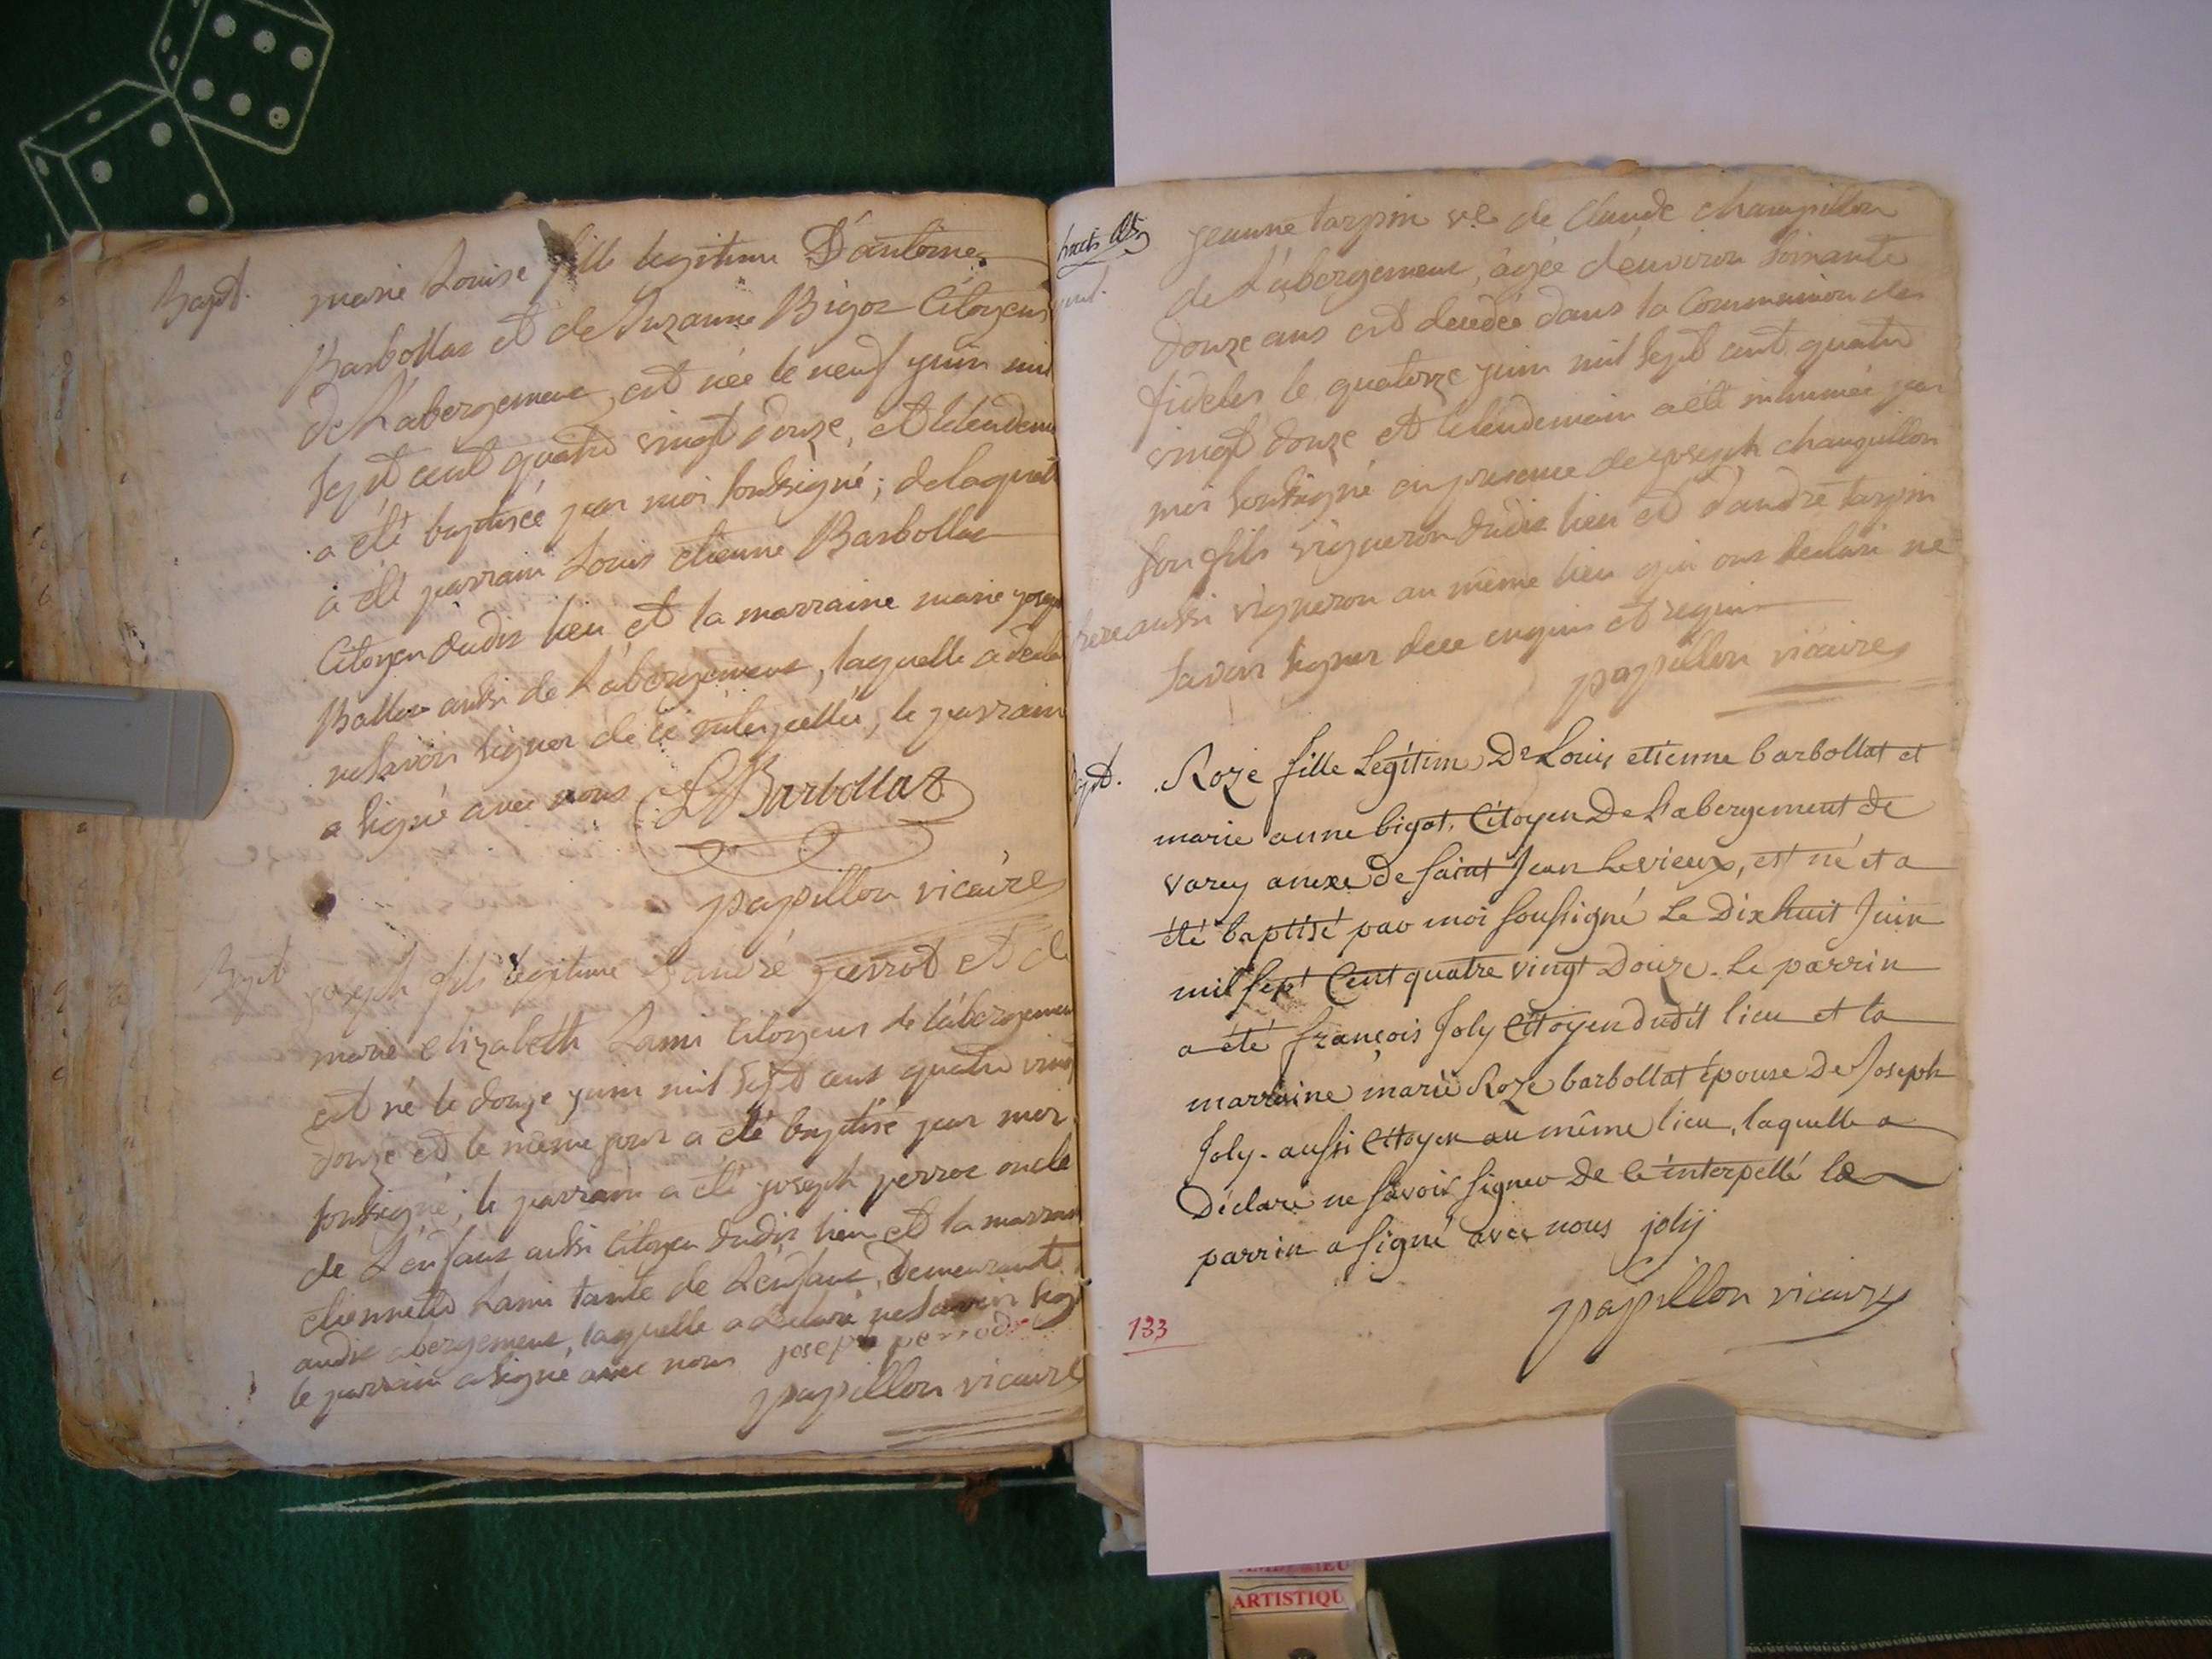 Bapt. marie Louise fille legitime D'antoine
Barbollat et de Suzanne Bigot Citoyens
de L'abergement, est née le neuf juin mil
sept cent quatre vingt douze, et lelendemain
a été baptisée par moi soussigné; delaquelle
a été parrain Louis etienne Barbollat
Citoyen dudit lieu et la marraine marie
Bollet aussi de L'abergement, laquelle a
ne savoir signer de ce interpellée, le parrain
a signé avec nous LBarbollat
papillon vicaire
Bapt joseph fils legitime d'andré perrot et de
marie elizabeth Lami Citoyens de l'abergement
est né le douze juin mil sept cent quatre vingt
douze et le même jour a été baptisé par moi
soussigné; le parrain a été joseph perrot oncle
de L'enfant aussi Citoyen dudit lieu et la marraine
etiennette Lami tante de L'enfant, demeurante
audit abergement, laquelle a declaré ne savoir
le parrain a signé avec nous joseph perrod
papillon vicaire
jeanne tarpin ve. de Claude champillon
de L'abergement, agée d'environ soixante
douze ans est decedée dans la Communion des
fideles le quatorze juin mil sept cent quatre
vingt douze et lelendemain a été inhumée par
moi soussigné en presence de joseph champillon
son fils vigneron dudit lieu et d'andré tarpin
frere aussi vigneron au même lieu qui ont declaré ne
savoir signer de ce enquis et requis
papillon vicaire
Bapt. Roze fille Legitime De Louis etienne barbollat et
marie anne bigot. Citoyen De Labergement de
varey anexe de saint Jean Levieux, est né et a
été baptisé par moi soussigné Le Dix huit Juin
mil sept Cent quatre vingt Douze. Le parrin
a été françois Joly Citoyen dudit lieu et la
marraine marie Roze barbollat épouse De Joseph
Joly. aussi Citoyen au même lieu, laquelle a
Déclaré ne savoir signer De ce interpellé le
parrin a signé avec nous jolij
papillon vicaire
133
ARTISTIQU